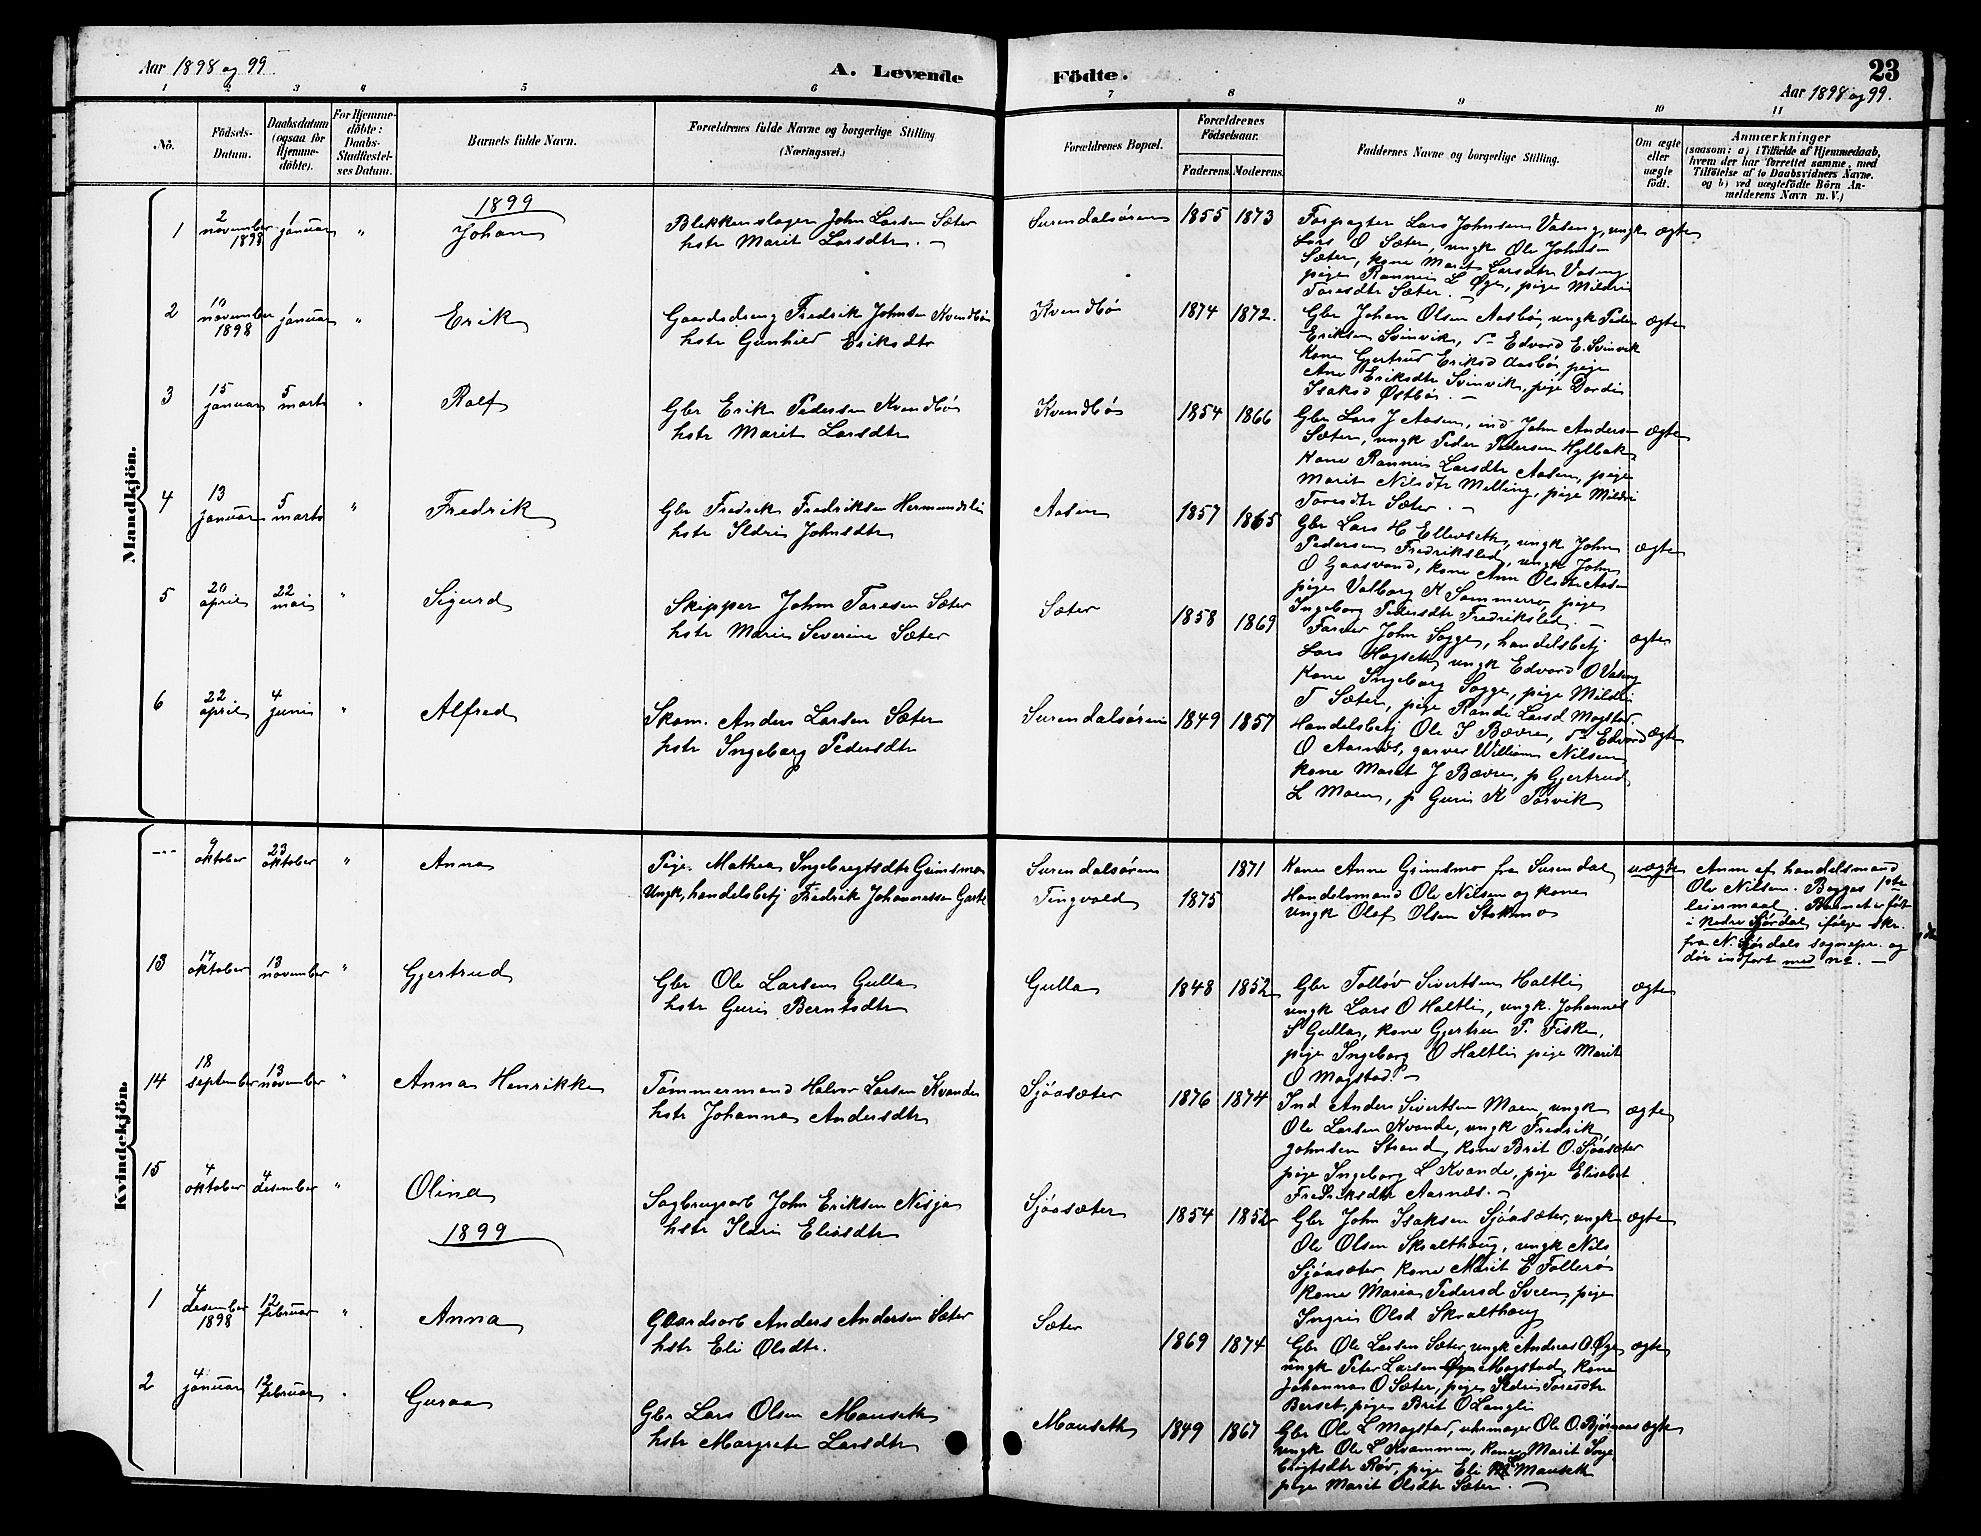 Aar 1898 og 99.
A. Levende
Födte.
23
Aar 1898 og 99.
1 2 3 4 5 6 7 8 9 10 11
No.
Födsels-
Datum.
Daabsdatum
(ogsaa for
Hjemme-
döbte).
For Hjemme-
döbte:
Daabs-
Stadfæstel-
ses Datum.
Barnets fulde Navn.
Forældrenes fulde Navne og borgerlige Stilling
(Næringsvei.)
Forældrenes Bopæl.
Forældrenes
Födselsaar.
Faderens.
Moderens.
Faddernes Navne og borgerlige Stilling.
Om ægte
eller
uægte
födt.
Anmærkninger
(saasom: a) i Tilfælde af Hjemmedaab,
hvem der har forrettet samme, med
Tilföielse af to Daabsvidners Navne.
og b) ved uægtefödte Börn An-
melderens Navn m. V.)
Mandkjön.
1899
1
2
november
1898
1
januar
"
Johan
Blekkenslager John Larsen Sæter
hstr Marit Larsdtr. —
Surendalsören
1855
1873
Forpagter Lars Johnsen Vaseng, ungk
Lars O Sæter, ungk Ole Johnsen
Sæter, kone Marit Larsdtr Vaseng
pige Rannei L Øye, pige Mildri
Toresdtr Sæter. —
ægte
2
10
november
1898
1
januar
"
Erik
Gaardsdreng Fredrik Johnsen Kvendbö
hstr Gunhild Eriksdtr
Kvendbö
1874
1872.
Gbr Johan Olsen Aasbö, ungk Peder
Eriksen Svinvik, do Edvard E. Svinvik
Kone Gjertrud Eriksd Aasbö, pige
Ane Eriksdtr Svinvik, pige Dordi
Isaksd Østbö. —
ægte
3
15
januar
5
marts
"
Ralf
Gbr Erik Pedersen Kvendbö
hstr Marit Larsdtr
Kvendbö
1854
1866
Gbr Lars J Aasen, ind John Andersen
Sæter, ungk Peder Pedersen Hylbak
Kone Rannei Larsdtr Aasen, pige
Marit Nilsdtr Melling, pige Mildri
Toresdtr Sæter. —
ægte
4
13
januar
5
marts
"
Fredrik
Gbr Fredrik Fredriksen Hermundsli
hstr Ildri Johnsdtr
Aasen
1857
1865
Gbr Lars H Ellevseth, ungk John
Pedersen Fredriksled, ungk John
O Gaasvand, kone Ane Olsdtr Aasen
pige Valborg K Sommerro, pige
Ingeborg Pedersdtr Fredriksled. —
ægte
5
20
april
22
mai
"
Sigurd
Skipper John Toresen Sæter
hstr Marie Severine Sæter
Sæter
1858
1869
Farver John Sogge, handelsbetj
Lars Hagseth, ungk Edvard O Vaseng
Kone Ingeborg Sogge, pige Mildri
T Sæter, pige Randi Larsd Mogstad
ægte
6
22
april
4
juni
"
Alfred
Skom. Anders Larsen Sæter
hstr Ingeborg Pedersdtr
Surendalsören
1849
1857
Handelsbetj Ole J Bævre, do Edvard
O Aarnæs, garver William Nilsen
kone Marit J Bævre, p Gjertrud
L Moen, p Guri K Torvik
ægte
Kvindekjön.
---
9
oktober
23
oktober
"
Anna
Pige Mathea Ingebregtsdtr Grimsmo
Ungk, handelsbetj Fredrik Johannessen Garte
Surendalsören
Tingvold
1875
1871
Kone Anne Grimsmo fra Surendal
Handelsmand Ole Nilsen og kone
ungk Olaf Olsen Stokmo
uægte
Anm af handelsmand
Ole Nilsen. Begges 1ste
leiermaal. Barnet er född
i Nedre Stjördal ifölge skr.
fra N. Stjördals sognepr. og
der indfört med no. —
13
17
oktober
13
november
"
Gjertrud
Gbr Ole Larsen Gulla
hstr Guri Berntsdtr
Gulla
1848
1852
Gbr Tollöv Sivertsen Haltli
ungk Lars O Haltli, ungk. Johannes
S Gulla, kone Gjertru T. Fiske,
pige Ingeborg O Haltli pige Marit
O Mogstad. —
ægte
14
18
september
13
november
"
Anna Henrikke
Tömmermand Halvor Larsen Kvande
hstr Johanna Andersdtr
Sjöasæter
1876
1874
Ind Anders Sivertsen Moen, ungk
Ole Larsen Kvande, ungk Fredrik
Johnsen Strand, kone Brit O. Sjöasæter
pige Ingeborg L Kvande, pige Elisabet
Fredriksdtr Aarnæs. —
ægte
15
4
oktober
4
desember
"
Olina
Sagbrugsarb John Eriksen Nisja
hstr Ildri Eliasdtr
Sjöasæter
1854
1852
Gbr John Isaksen Sjöasæter, ungk
Ole Olsen Skralthaug, ungk Nils
Sjöasæter kone Marit E Tollerö
kone Maria Pedersd Sveen, pige
Ingri Olsd Skralthaug
ægte
1899
1
4
desember
1898
12
februar
"
Anna
Gaardsarb Anders Andersen Sæter
hstr Eli Olsdtr.
Sæter
1869
1874
Gbr Ole Larsen Sæter, ungk Andreas O. Øye
ungk Peter Larsen Mogstad, kone
Johanna O Sæter, pige Ildri Toresdtr
Berset, pige Brit O Langli
ægte
2
4
januar
12
februar
"
Guraa
Gbr Lars Olsen Mauseth
hstr Margrete Larsdtr
Mauseth
1849
1867
Gbr Ole L Mogstad, uhrmager Ole O. Bjørnaas
ungk Ole L Kvammen, kone Marit Inge
brigtsdtr Röv, pige Eli Mauseth
pige Marit Olsdtr Sæter. —
ægte